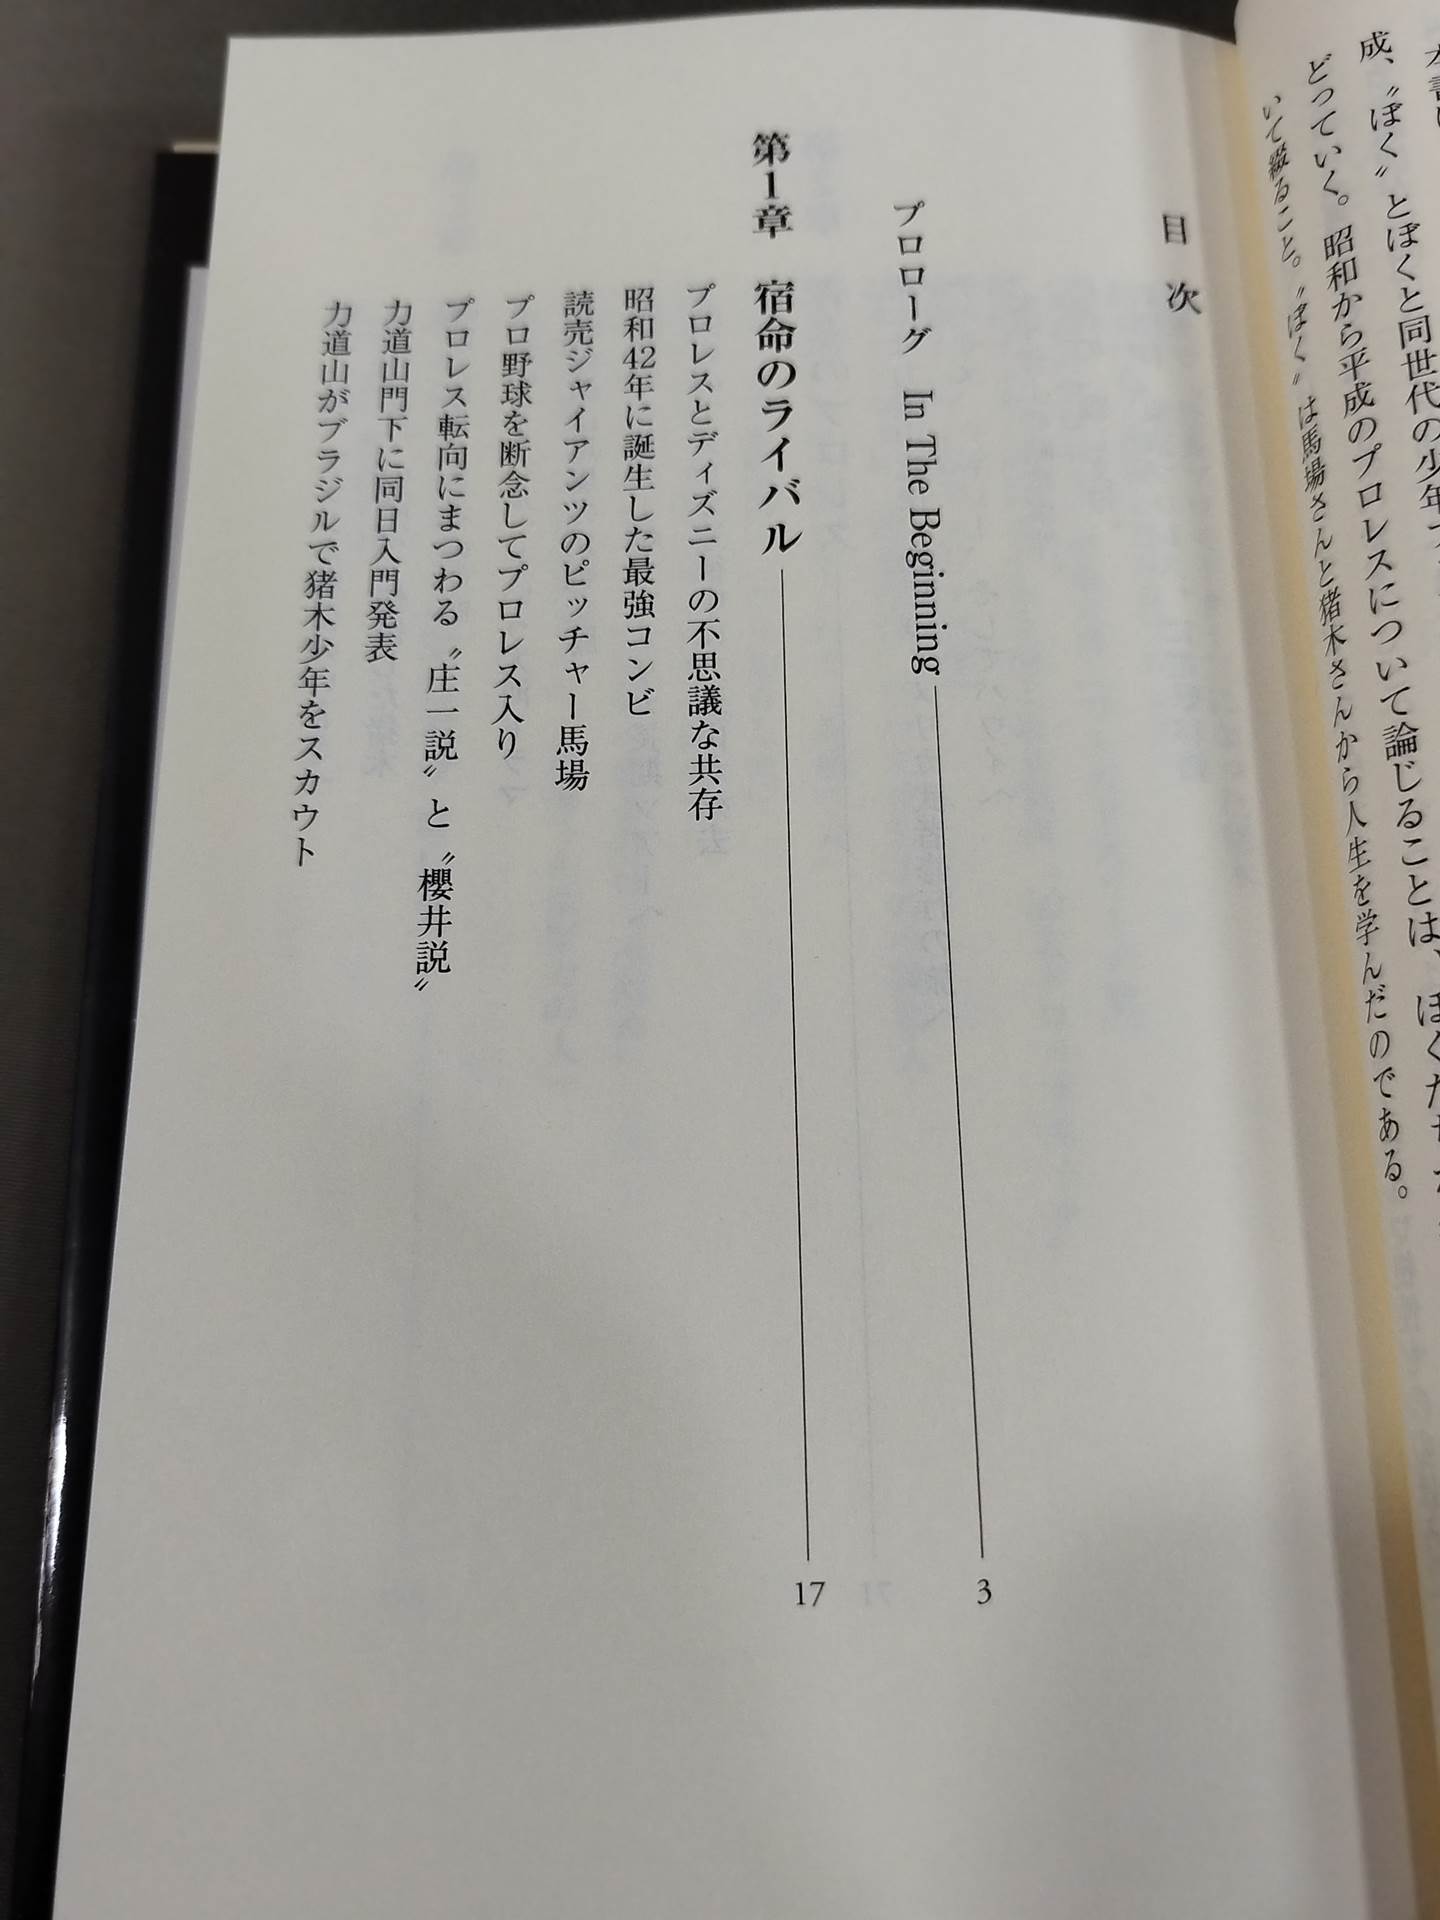 成、〝ぼく〟とぼくと同世代の少年フ
どっていく。昭和から平成のプロレスについて論じることは、ぼくたちが
いて綴ること。〝ぼく〟は馬場さんと猪木さんから人生を学んだのである。
目次
プロローグ　In The Beginning 3
第1章　宿命のライバル 17
プロレスとディズニーの不思議な共存
昭和42年に誕生した最強コンビ
読売ジャイアンツのピッチャー馬場
プロ野球を断念してプロレス入り
プロレス転向にまつわる〝庄一説〟と〝櫻井説〟
力道山門下に同日入門発表
力道山がブラジルで猪木少年をスカウト